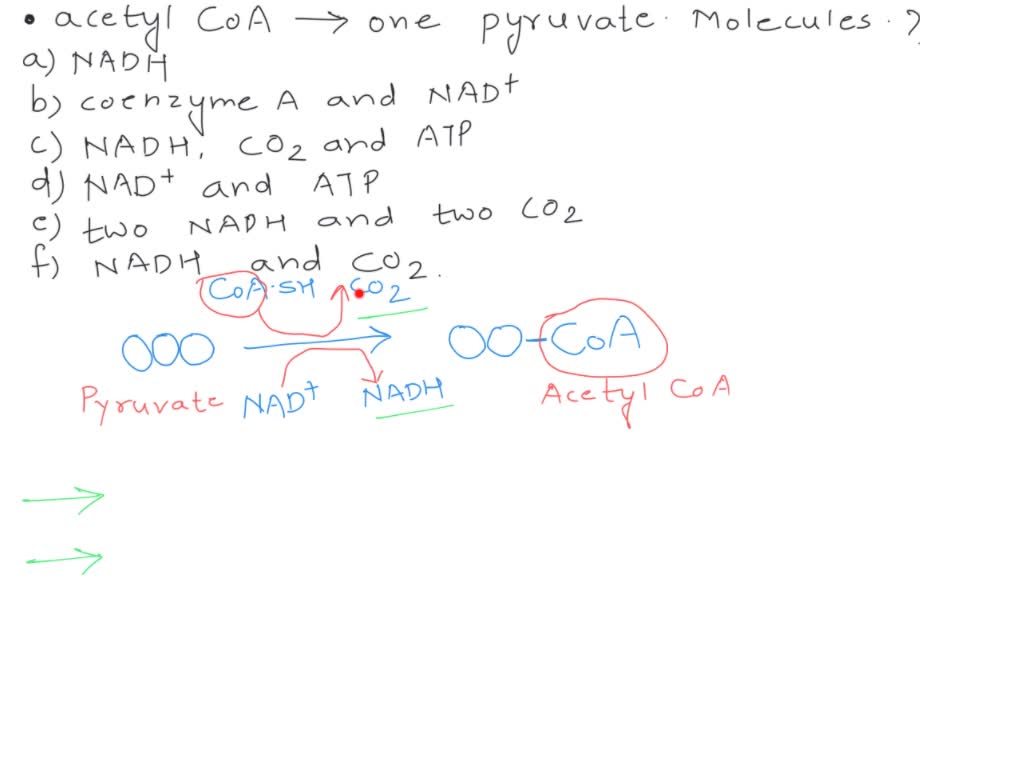 • acetyl CoA → one pyruvate. Molecules. ?
a) NADH
b) coenzyme A and NAD+
c) NADH, CO2 and ATP
d) NAD+ and ATP
e) two NADH and two CO2
f) NADH and CO2.
CoA·SH CO2
CoA
Pyruvate NAD+ NADH Acetyl CoA